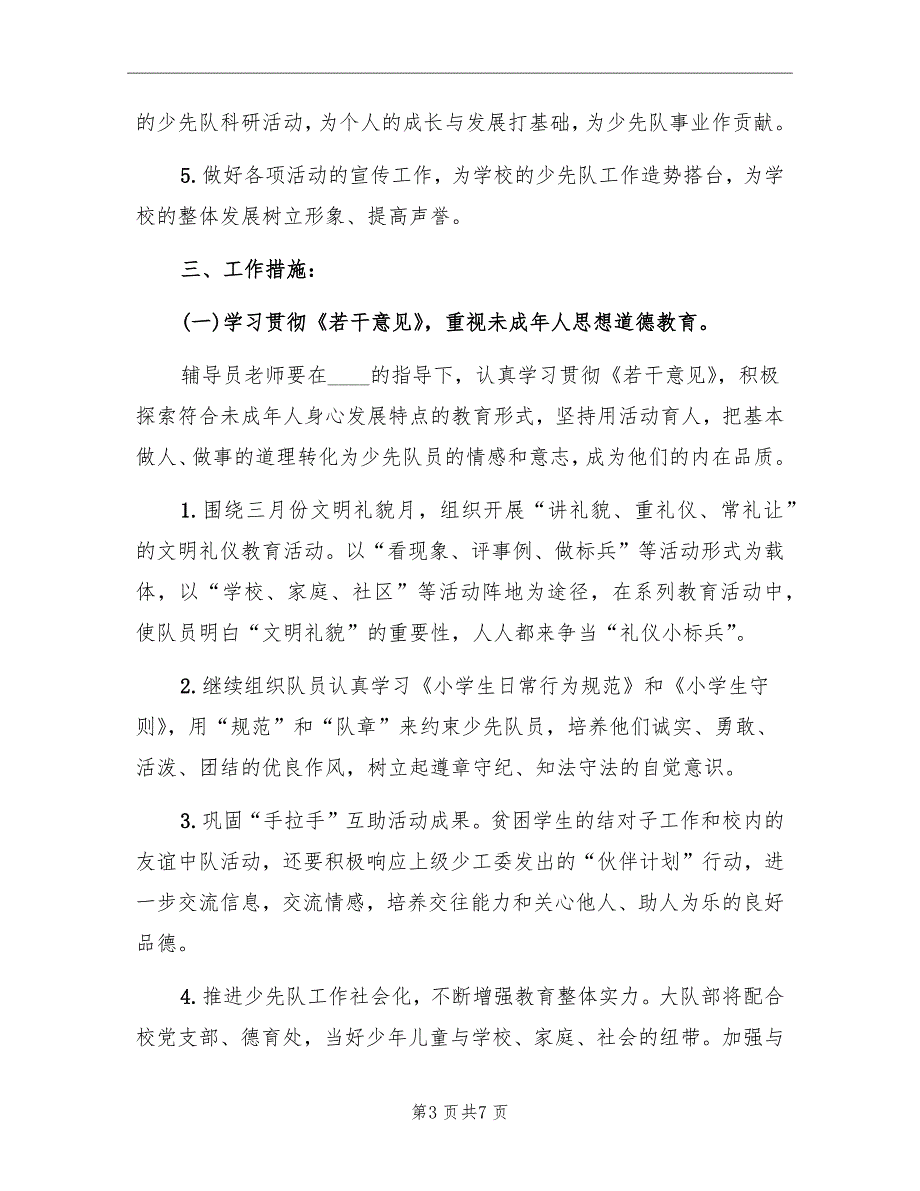 的少先队科研活动，为个人的成长与发展打基础，为少先队事业作贡献。
5. 做好各项活动的宣传工作，为学校的少先队工作造势搭台，为学
校的整体发展树立形象、提高声誉。
三、工作措施：
(一)学习贯彻《若干意见》，重视未成年人思想道德教育。
辅导员老师要在____的指导下，认真学习贯彻《若干意见》，积极
探索符合未成年人身心发展特点的教育形式，坚持用活动育人，把基本
做人、做事的道理转化为少先队员的情感和意志，成为他们的内在品质。
1. 围绕三月份文明礼貌月，组织开展“讲礼貌、重礼仪、常礼让”
的文明礼仪教育活动。以“看现象、评事例、做标兵”等活动形式为载
体，以“学校、家庭、社区”等活动阵地为途径，在系列教育活动中，
使队员明白“文明礼貌”的重要性，人人都来争当“礼仪小标兵”。
2. 继续组织队员认真学习《小学生日常行为规范》和《小学生守
则》，用“规范”和“队章”来约束少先队员，培养他们诚实、勇敢、
活泼、团结的优良作风，树立起遵章守纪、知法守法的自觉意识。
3. 巩固“手拉手”互助活动成果。贫困学生的结对子工作和校内的
友谊中队活动，还要积极响应上级少工委发出的“伙伴计划”行动，进
一步交流信息，交流情感，培养交往能力和关心他人、助人为乐的良好
品德。
4. 推进少先队工作社会化，不断增强教育整体实力。大队部将配合
校党支部、德育处，当好少年儿童与学校、家庭、社会的纽带。加强与
第3 页共7 页